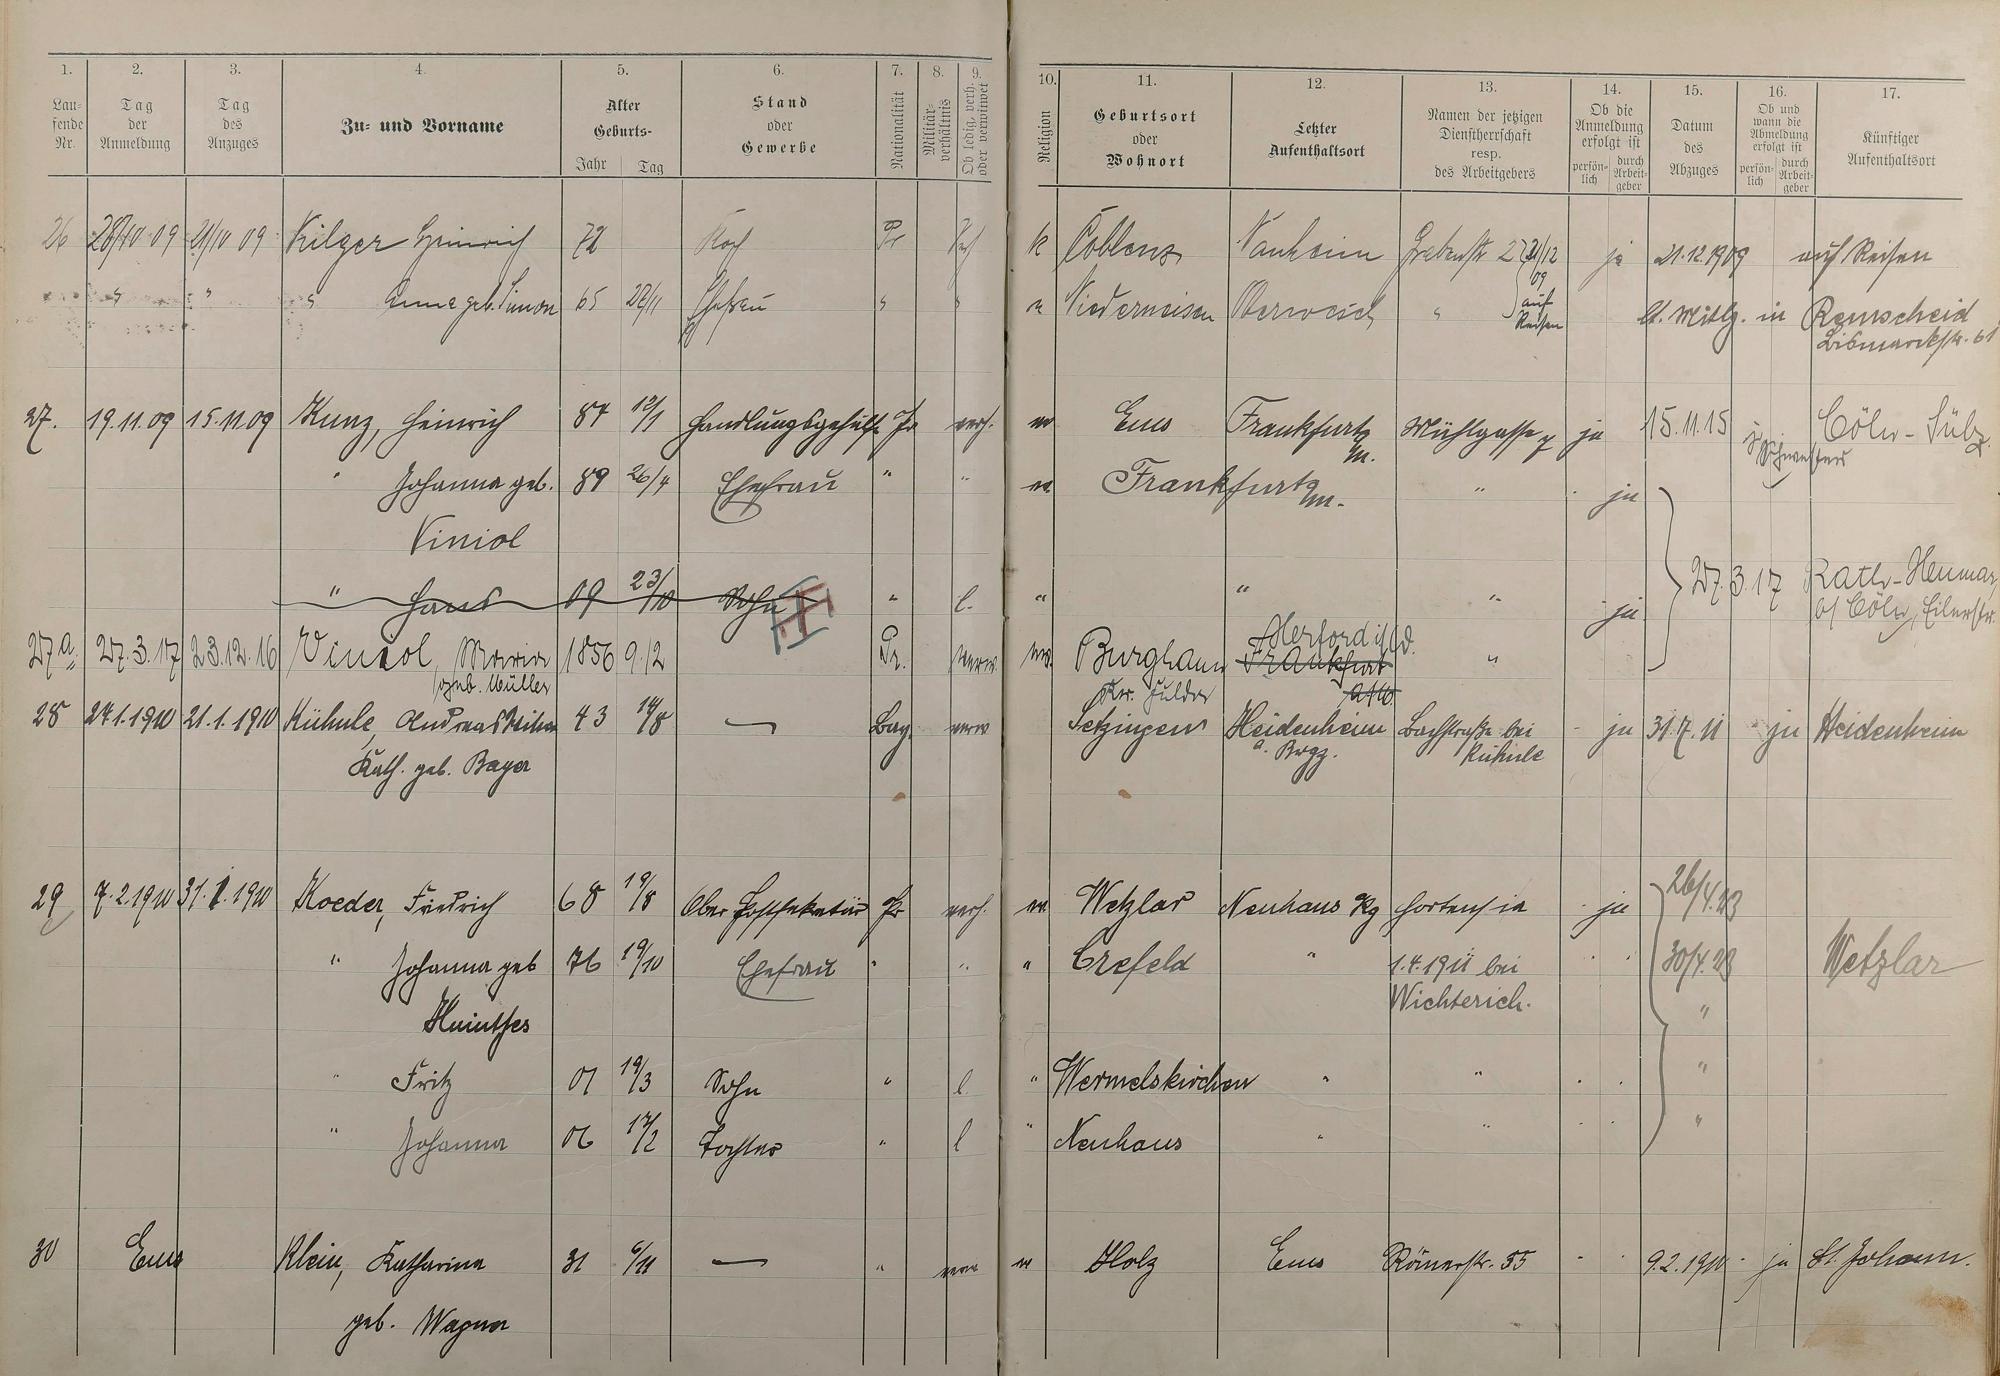 1. 2. 3. 4. 5. 6. 7. 8. 9. 10. 11. 12. 13. 14. 15. 16. 17.
Lau-
fende
Nr.
Tag
der
Anmeldung
Tag
des
Anzuges
Zu- und Vorname
Alter
Geburts-
Jahr Tag
Stand
oder
Gewerbe
Nationalität
Militär-
verhältnis
Ob ledig, verh.
oder verwitwet
Religion
Geburtsort
oder
Wohnort
Letzter
Aufenthaltsort
Namen der jetzigen
Dienstherrschaft
resp.
des Arbeitgebers
Ob die
Anmeldung
erfolgt ist
persön-
lich
durch
Arbeit-
geber
Datum
des
Abzuges
Ob und
wann die
Abmeldung
erfolgt ist
persön-
lich
durch
Arbeit-
geber
Künftiger
Aufenthaltsort
26 09 21/10 09 Kilger Heinrich 72 Koch Pr k Coblenz Nauheim Grabenstr 2 21/12 ja 21.12.1909 auf Reisen
09
" " " Anna geb. Simon 65 Ehefrau " " Niederneisen " auf Lt. Mitlg. in Remscheid
Reisen Bismarckstr. 61
27. 19.11.09 15.11.09 Kunz, Heinrich 87 12/1 Handlungsgehülfe Pr verh. ev Ems Frankfurt Mühlgasse 7 ja 15.11.15 Cöln - Sülz
a/m.
" Johanna geb. 89 26/4 Ehefrau " " ev. Frankfurt a/m. " ja
Viniol
" Hans 09 23/10 Sohn " l. " " " ja 27.3.17 Rath-Heumar
b/ Cöln, Eilerstr.
27a 27.3.17 23.12.16 Viniol, Maria 1856 9.12 Pr. verw. ev. Burghaun Herford i/W. "
geb. Müller Kr. Fulda Frankfurt a/M.
28 24.1.1910 21.1.1910 Kühnle, Andreas Witwe 43 14/8 — Bay. verw Setzingen Heidenheim Bachstraße bei ja 31.7.11 ja Heidenheim
Kath. geb. Bayer a. Brgz. Kühnle
29 7.2.1910 31.1.1910 Roeder, Friedrich 68 19/8 Ober Postsekretär Pr verh. ev. Wetzlar Neuhaus Hortensia ja 26/4.23
" Johanna geb 76 19/10 Ehefrau " " " Crefeld " 1.4.1911 bei 30/4.23 Wetzlar
Wichterich. "
Fritz 01 19/3 Sohn " l. " Wermelskirchen " " "
" Johanna 06 17/2 Tochter " l " Neuhaus " " "
30 Ems Klein, Katharina 31 6/11 — " verw ev Holz Ems Römerstr. 55 9.2.1910 ja St. Johann.
geb. Wagner